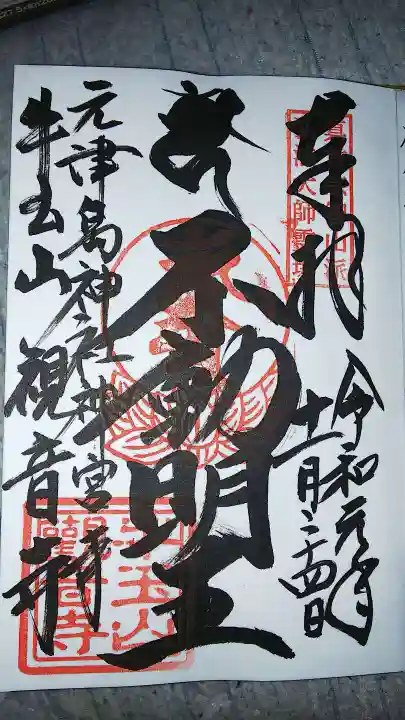 奉拝
令和元年
十一月二十四日
不動明王
元津島神社神宮寺
牛玉山観音寺
牛玉山
觀音寺